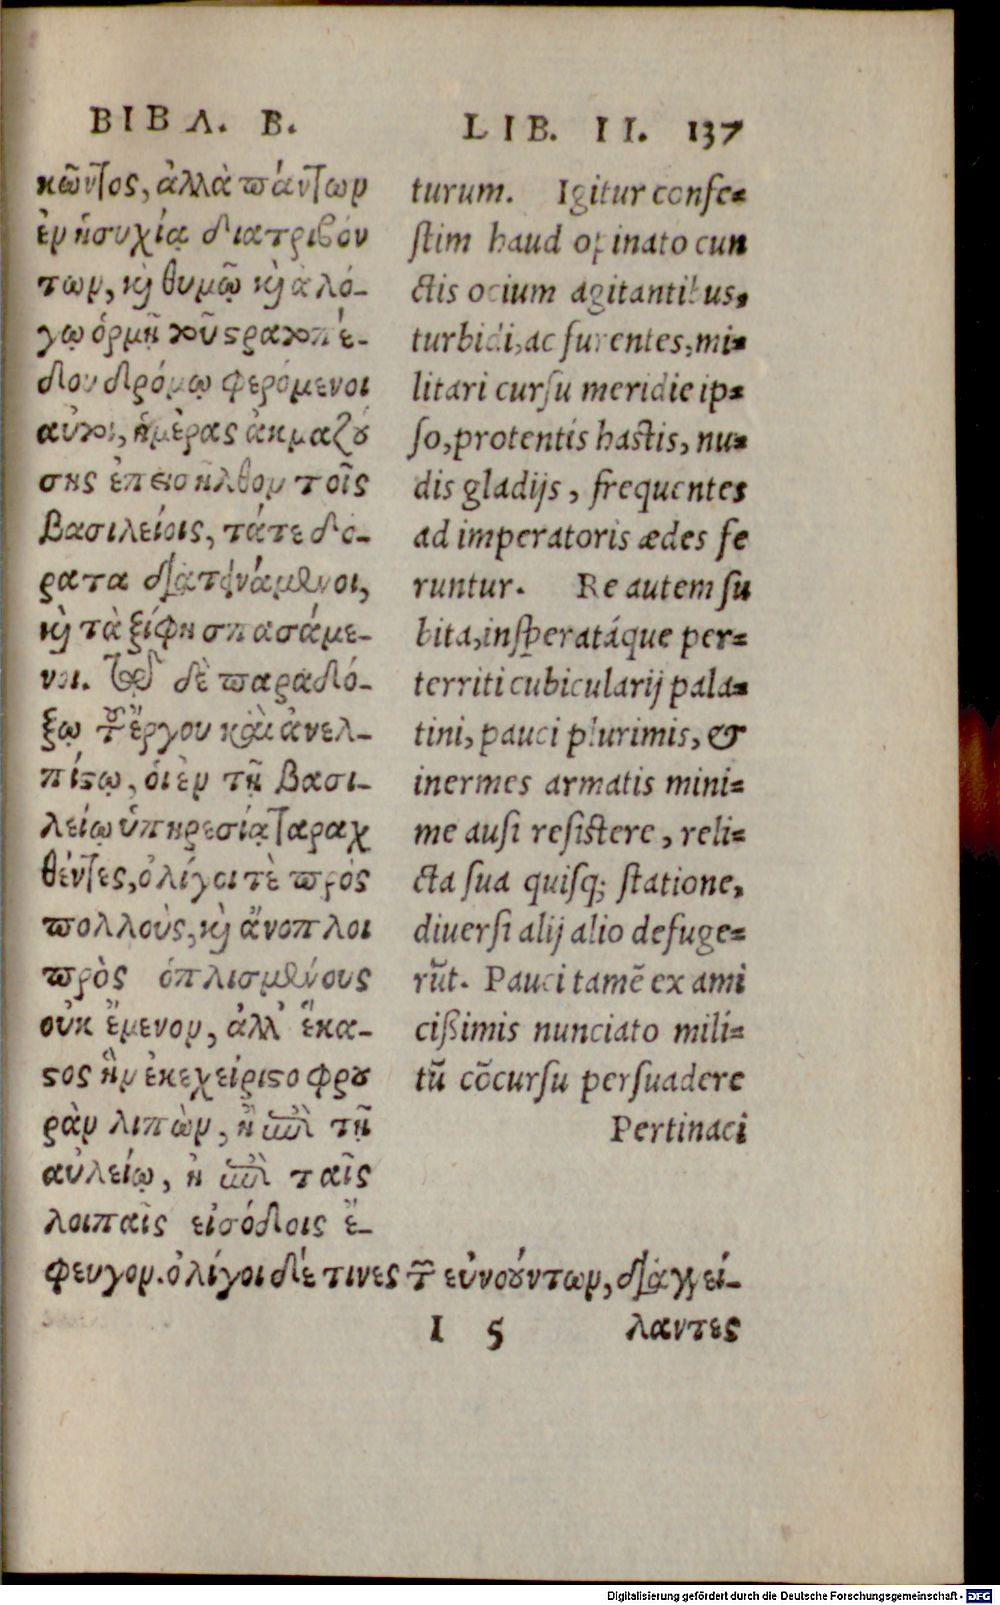 ΒΙΒΛ. Β.
κῶντος, ἀλλὰ πάντων
ἐν ἡσυχίᾳ διατριβόν
των, καὶ θυμῷ καὶ ἀλό-
γῳ ὁρμῇ τοῦ στρατοπέ-
δου δρόμῳ φερόμενοι
αὐτοὶ, ἡμέρας ἀκμαζού
σης ἐπεισῆλθον τοῖς
βασιλείοις, τά τε δό-
ρατα διατεινάμενοι,
καὶ τὰ ξίφη σπασάμε-
νοι. τῷ δὲ παραδό-
ξῳ τοῦ ἔργου καὶ ἀνελ-
πίστῳ, ὁι ἐν τῇ βασι-
λείῳ ὑπηρεσίᾳ ταραχ
θέντες, ὀλίγοι τὲ πρὸς
πολλοὺς, καὶ ἄνοπλοι
πρὸς ὁπλισμένους
οὐκ ἔμενον, ἀλλ' ἕκα-
στος ἣν ἐκεχείριστο φρου
ρὰν λιπὼν, ἢ ἐπὶ τῇ
αὐλείῳ, ἢ ἐπὶ ταῖς
λοιπαῖς εἰσόδοις ἔ-
φευγον. ὀλίγοι δέ τινες τῶν εὐνούντων, διαγγεί-
λαντες
LIB. II. 137
turum. Igitur confe=
ſtim haud opinato cun
ctis ocium agitantibus,
turbidi, ac furentes, mi=
litari curſu meridie ip=
ſo, protentis haſtis, nu=
dis gladijs, frequentes
ad imperatoris ædes fe
runtur. Re autem ſu
bita, inſperatáque per=
territi cubicularij pala=
tini, pauci plurimis, &
inermes armatis mini=
me auſi reſiſtere, reli=
cta ſua quiſq; ſtatione,
diuerſi alij alio defuge=
rũt. Pauci tamẽ ex ami
cißimis nunciato mili=
tũ cõcurſu perſuadere
Pertinaci
I 5
Digitalisierung gefördert durch die Deutsche Forschungsgemeinschaft - DFG